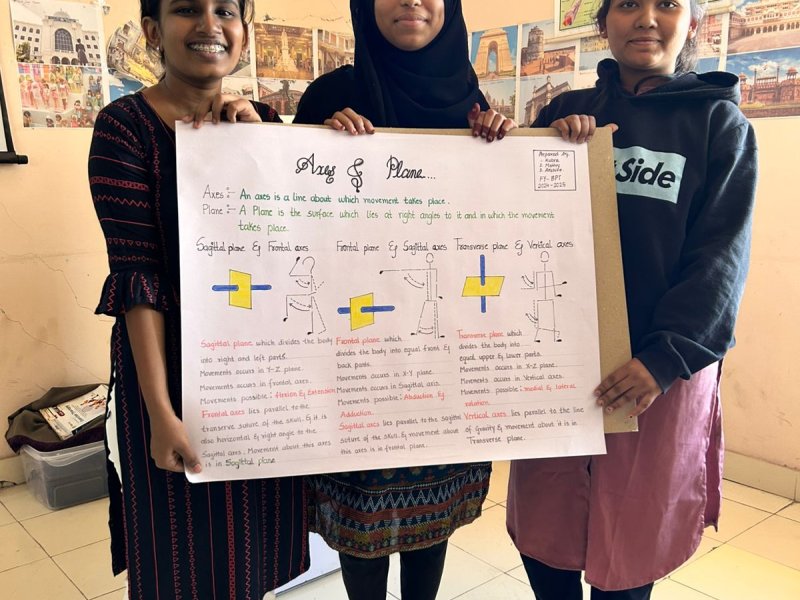 Axes & Plane...
Prepared By,
FY-BPT
2024-2025
Axes:- An axes is a line about which movement takes place.
Plane:- A Plane is the surface which lies at right angles to it and in which the movement
takes place.
Sagittal plane & Frontal axes
Frontal plane & Sagittal axes
Transverse plane & Vertical axes
Sagittal plane which divides the body
into right and left parts.
Movements occurs in Y-Z plane.
Movements occurs in frontal axes.
Movements possible: flexion & Extension
Frontal axes lies parallel to the
transerve suture of the skull & it is
also horizontal & right angle to the
Sagittal axis. Movement about this axes
is in Sagittal plane
Frontal plane which
divides the body into equal front &
back parts.
Movements occurs in X-Y plane.
Movements occurs in Sagittal axis.
Movements possible: Abduction &
Adduction.
Sagittal axes lies parallel to the sagittal
suture of the skull & movement about
this axes is in frontal plane.
Transverse plane which
divides the body into
equal upper & Lower parts.
Movements occurs in X-Z plane.
Movements occurs in Vertical axes.
Movements possible: medial & lateral
rotation.
Vertical axes lies parallel to the line
of Gravity & movement about it is in
Transverse plane.
Side